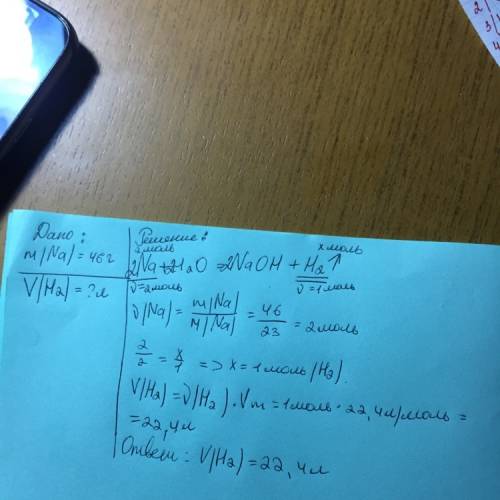 Дано:
m(Na)=46г
V(H2)=?л
Решение:
2моль
x моль
2Na+2H2O=2NaOH+H2↑
ν=2моль
ν=1моль
ν(Na)=m(Na)/M(Na)=46/23=2моль
2/2=x/1 => x=1моль(H2).
V(H2)=ν(H2)·Vm=1моль·22,4л/моль=
=22,4л
Ответ: V(H2)=22,4л
2
3
4